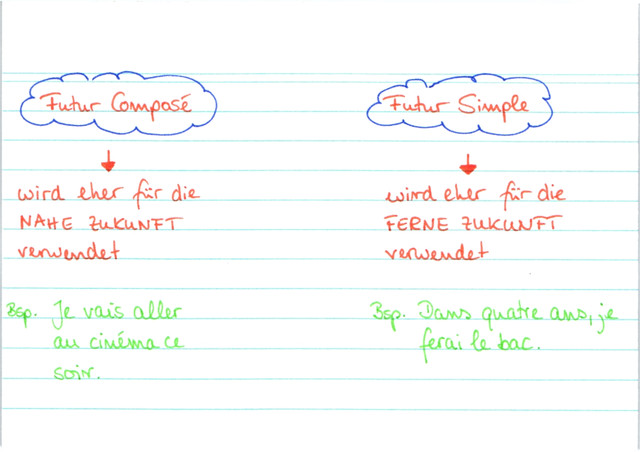 Futur Composé
wird eher für die
NAHE ZUKUNFT
verwendet
Bsp. Je vais aller
au cinéma ce
soir.
Futur Simple
wird eher für die
FERNE ZUKUNFT
verwendet
Bsp. Dans quatre ans, je
ferai le bac.